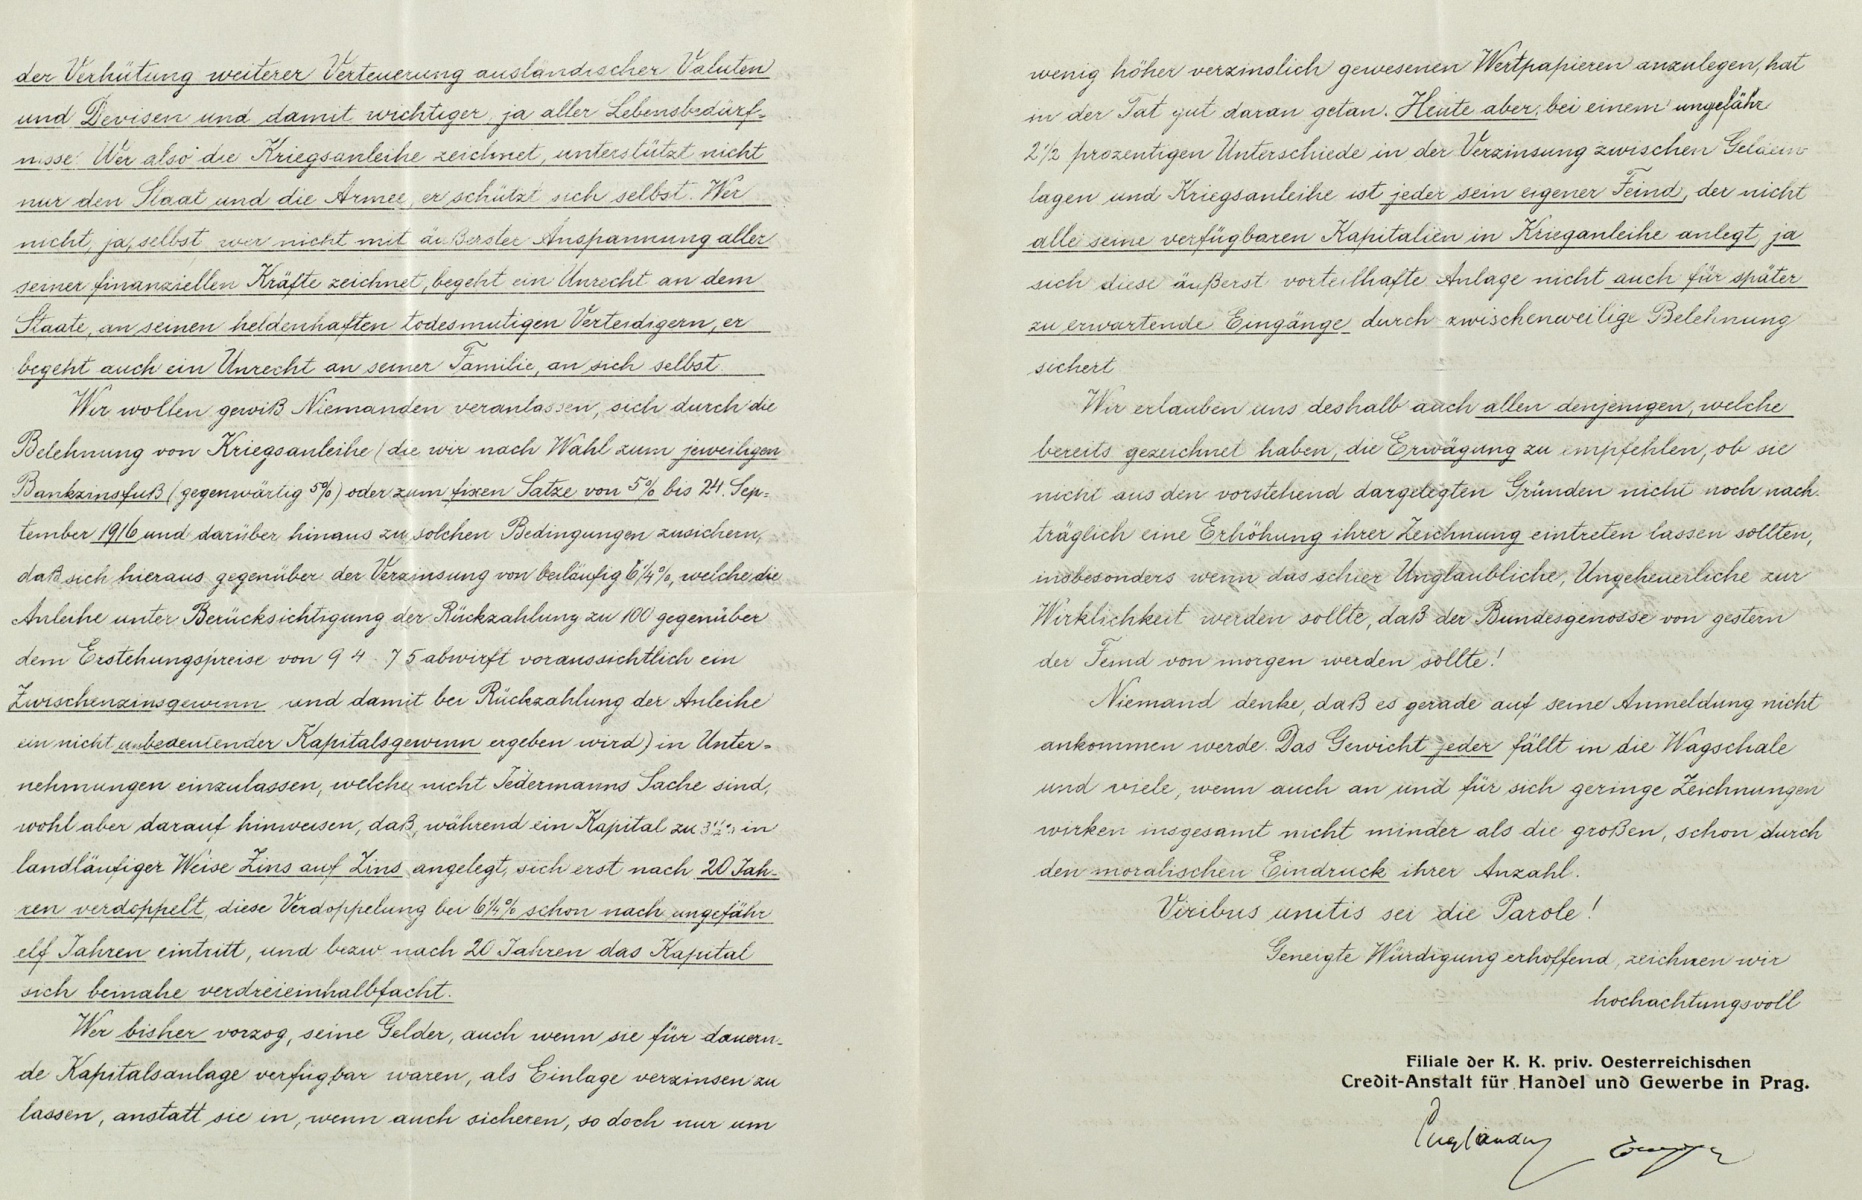 der Verhütung weiterer Verteuerung ausländischer Valuten
und Devisen und damit wichtiger, ja aller Lebensbedürf-
nisse. Wer also die Kriegsanleihe zeichnet, unterstützt nicht
nur den Staat und die Armee, er schützt sich selbst. Wer
nicht, ja, selbst wer nicht mit äußerster Anspannung aller
seiner finanziellen Kräfte zeichnet, begeht ein Unrecht an dem
Staate, an seinen heldenhaften todesmutigen Verteidigern, er
begeht auch ein Unrecht an seiner Familie, an sich selbst.
Wir wollen gewiß Niemanden veranlassen, sich durch die
Belehnung von Kriegsanleihe (die wir nach Wahl zum jeweiligen
Bankzinsfuß (gegenwärtig 5%) oder zum fixen Satze von 5% bis 24. Sep-
tember 1916 und darüber hinaus zu solchen Bedingungen zusichern,
daß sich hieraus gegenüber der Verzinsung von beiläufig 6¼%, welche die
Anleihe unter Berücksichtigung der Rückzahlung zu 100 gegenüber
dem Erstehungspreise von 94.75 abwirft voraussichtlich ein
Zwischenzinsgewinn und damit bei Rückzahlung der Anleihe
ein nicht unbedeutender Kapitalsgewinn ergeben wird) in Unter-
nehmungen einzulassen, welche nicht Jedermanns Sache sind,
wohl aber darauf hinweisen, daß, während ein Kapital zu 3½% in
landläufiger Weise Zins auf Zins angelegt, sich erst nach 20 Jah-
ren verdoppelt, diese Verdoppelung bei 6¼% schon nach ungefähr
elf Jahren eintritt, und bezw. nach 20 Jahren das Kapital
sich beinahe verdreieinhalbfacht.
Wer bisher vorzog, seine Gelder, auch wenn sie für dauern-
de Kapitalsanlage verfügbar waren, als Einlage verzinsen zu
lassen, anstatt sie in, wenn auch sicheren, so doch nur um
wenig höher verzinslich gewesenen Wertpapieren anzulegen, hat
in der Tat gut daran getan. Heute aber, bei einem ungefähr
2½ prozentigen Unterschiede in der Verzinsung zwischen Geldein-
lagen und Kriegsanleihe ist jeder sein eigener Feind, der nicht
alle seine verfügbaren Kapitalien in Krieganleihe anlegt, ja
sich diese äußerst vorteilhafte Anlage nicht auch für später
zu erwartende Eingänge durch zwischenweilige Belehnung
sichert
Wir erlauben uns deshalb auch allen denjenigen, welche
bereits gezeichnet haben, die Erwägung zu empfehlen, ob sie
nicht aus den vorstehend dargelegten Gründen nicht noch nach-
träglich eine Erhöhung ihrer Zeichnung eintreten lassen sollten,
insbesonders wenn das schier Unglaubliche, Ungeheuerliche zur
Wirklichkeit werden sollte, daß der Bundesgenosse von gestern
der Feind von morgen werden sollte!
Niemand denke, daß es gerade auf seine Anmeldung nicht
ankommen werde. Das Gewicht jeder fällt in die Wagschale
und viele, wenn auch an und für sich geringe Zeichnungen
wirken insgesamt nicht minder als die großen, schon durch
den moralischen Eindruck ihrer Anzahl.
Viribus unitis sei die Parole!
Geneigte Würdigung erhoffend, zeichnen wir
hochachtungsvoll
Filiale der K. K. priv. Oesterreichischen
Credit-Anstalt für Handel und Gewerbe in Prag.